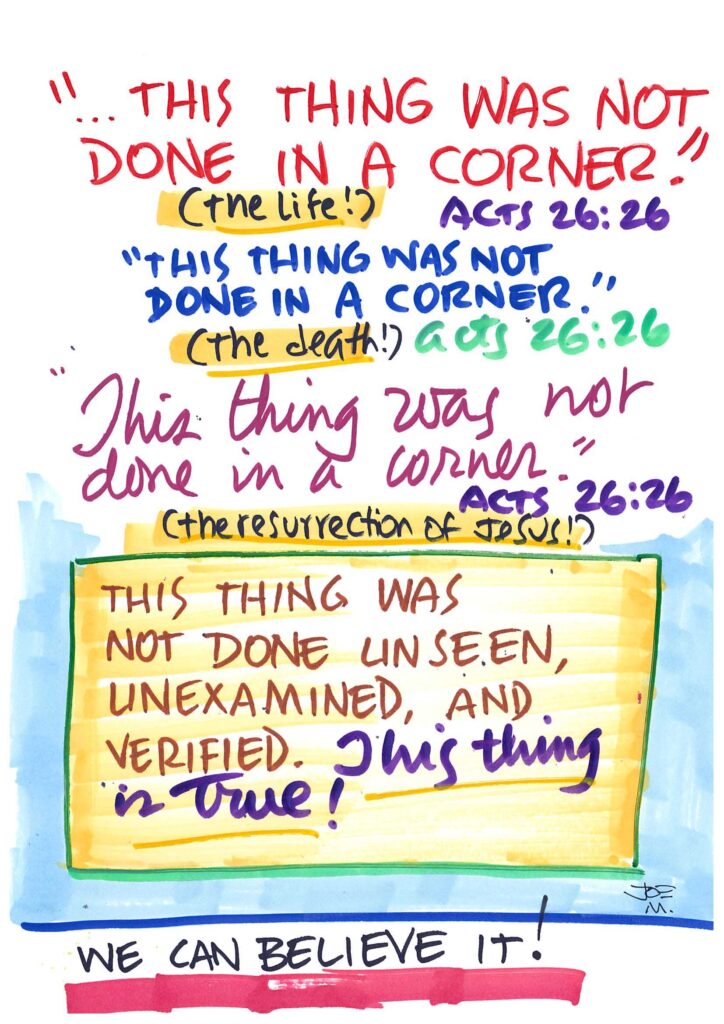 "... THIS THING WAS NOT
DONE IN A CORNER."
(the life!) ACTS 26:26
"THIS THING WAS NOT
DONE IN A CORNER."
(the death!) acts 26:26
"This thing was not
done in a corner."
ACTS 26:26
(the resurrection of Jesus!)
THIS THING WAS
NOT DONE UNSEEN,
UNEXAMINED, AND
VERIFIED. This thing
is True!
JOE
M.
WE CAN BELIEVE IT!